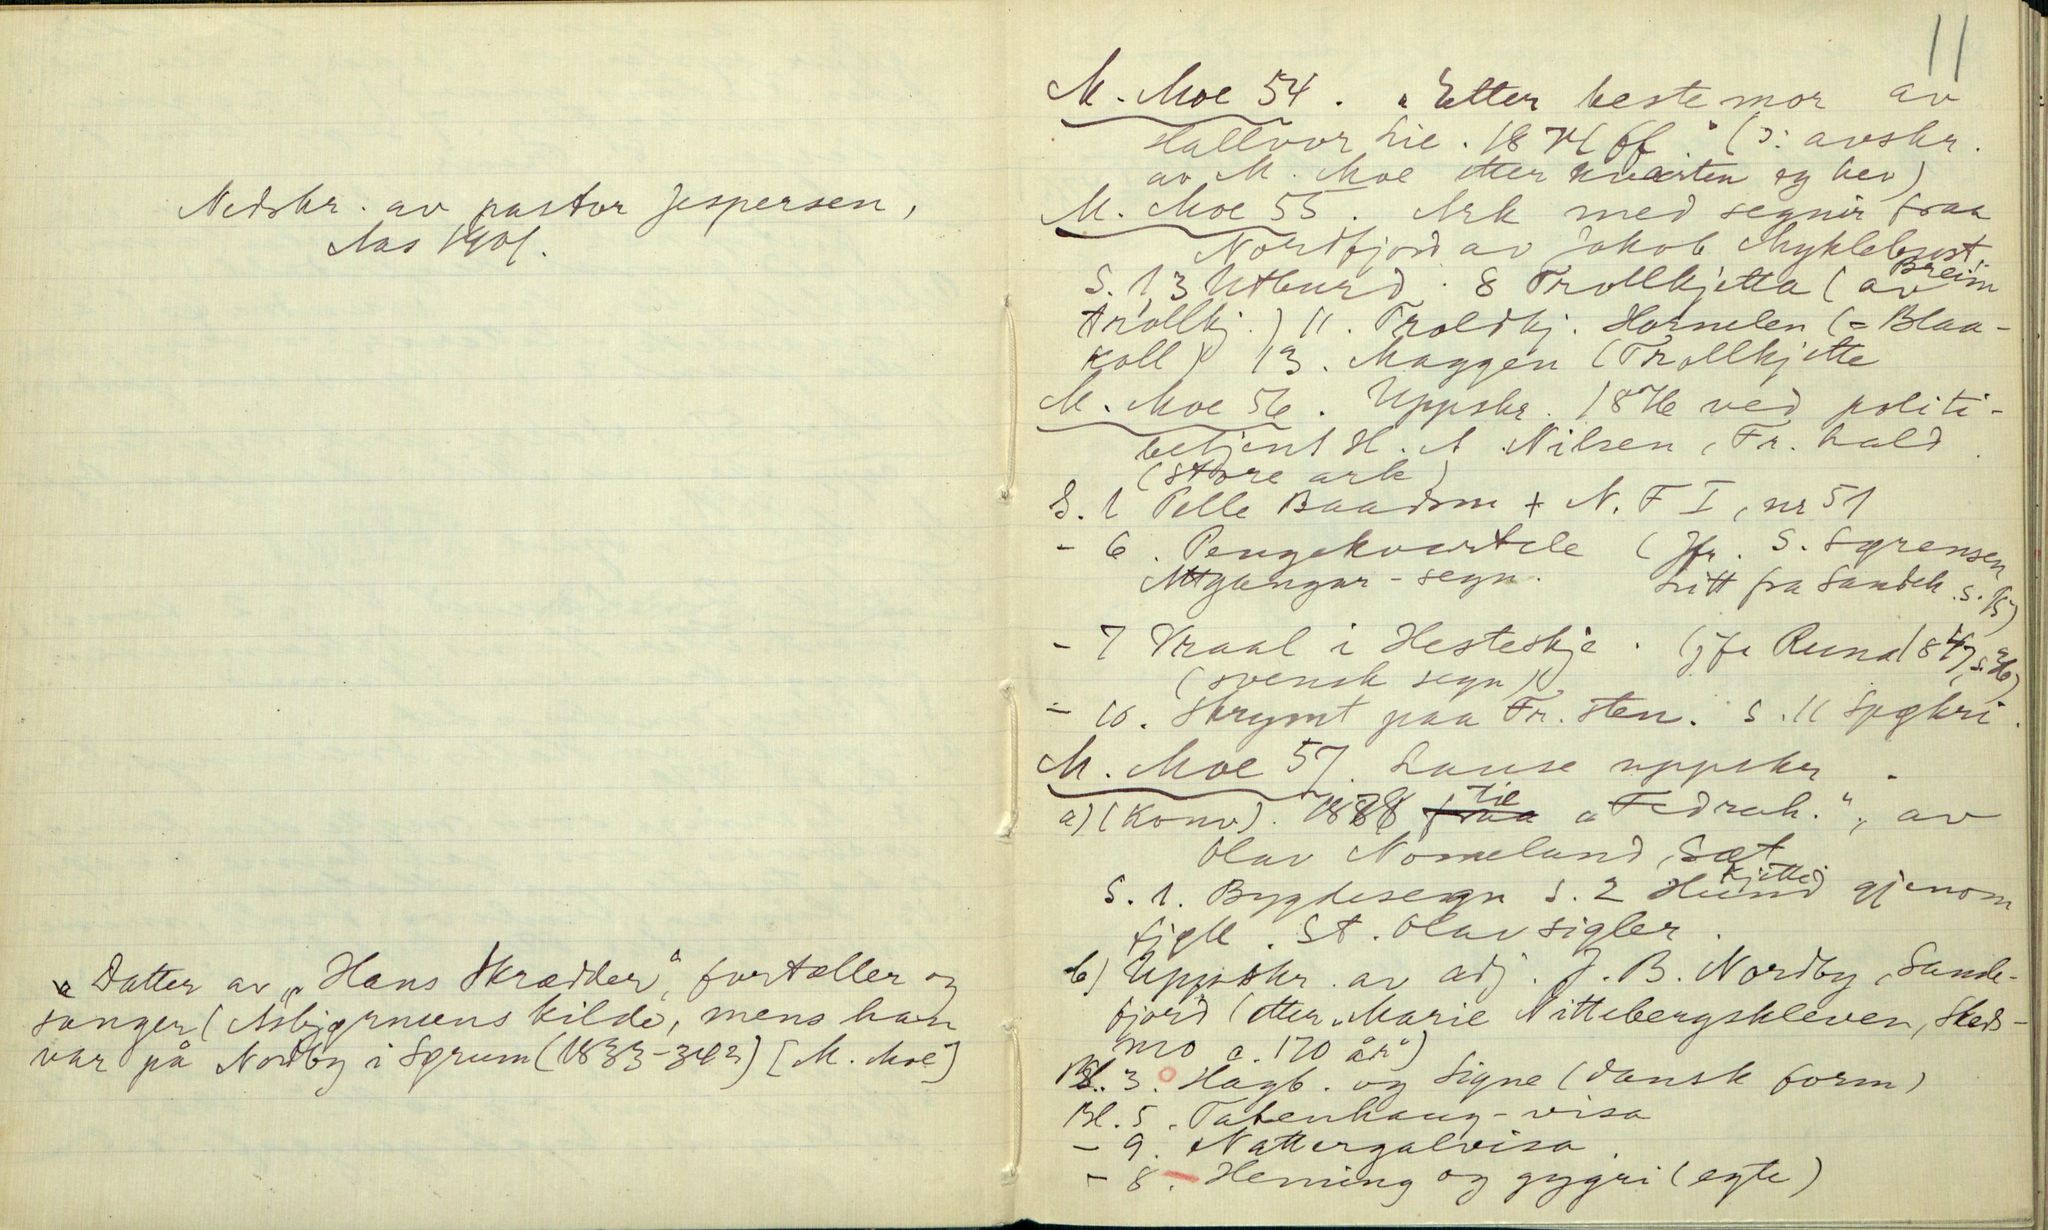 Nedskr. av pastor Jespersen,
Aas 1901.
"Datter av "Hans Skrædder", fortæller og
sanger (Asbjørnsens kilde, mens han
var på Nordby i Sørum (1833-34?) [M. Moe]
11
M. Moe 54. "Etter bestemor av
Hallvor Lie. 1874 ff." (ɔ: avskr.
av M. Moe etter kvarten og hev)
M. Moe 55. Ark med segnir fraa
Nordfjord av Jakob Myklebust,
Breim
S. 1, 3 Utburd. 8 Trollkjetta (av
trollkj.) 11. Troldkj. Hornelen (= Blaa-
koll) 13. Maggen (Trollkjette
M. Moe 56. Uppskr. 1876 ved politi-
betjent H. A. Nilsen, Fr. hald.
(store ark)
S. 1 Pelle Baadsm + N. F I, nr 51
- 6. Pengekvartele (Jfr. S. Sørensen
Attgangar-segn. Litt fra Sandeh. s. 15)
- 7 Kraal i Hesteskje. (jfr Runa 1847, s. 36)
(svensk segn)
- 10. Skrymt paa Fr. sten. s. 11 Spøkri.
M. Moe 57. Lause uppskr.
a) (Konv). 1888 fraa til "Fedrah.", av
Olav Nomeland, Sæt.
S. 1. Bygdesegn S. 2 Hund kjette gjenom
fjell. St. Olav sigler.
b) Uppskr. av adj. J. B. Nordby, Sande-
fjord (etter "Marie Nittebergskleven, Skeds-
mo c. 170 år")
Bl. 3. Hagb. og Signe (dansk form)
Bl. 5. Tabenhaug-visa
- 9. Nattergalvisa
- 8. Heming og gygri (egte)